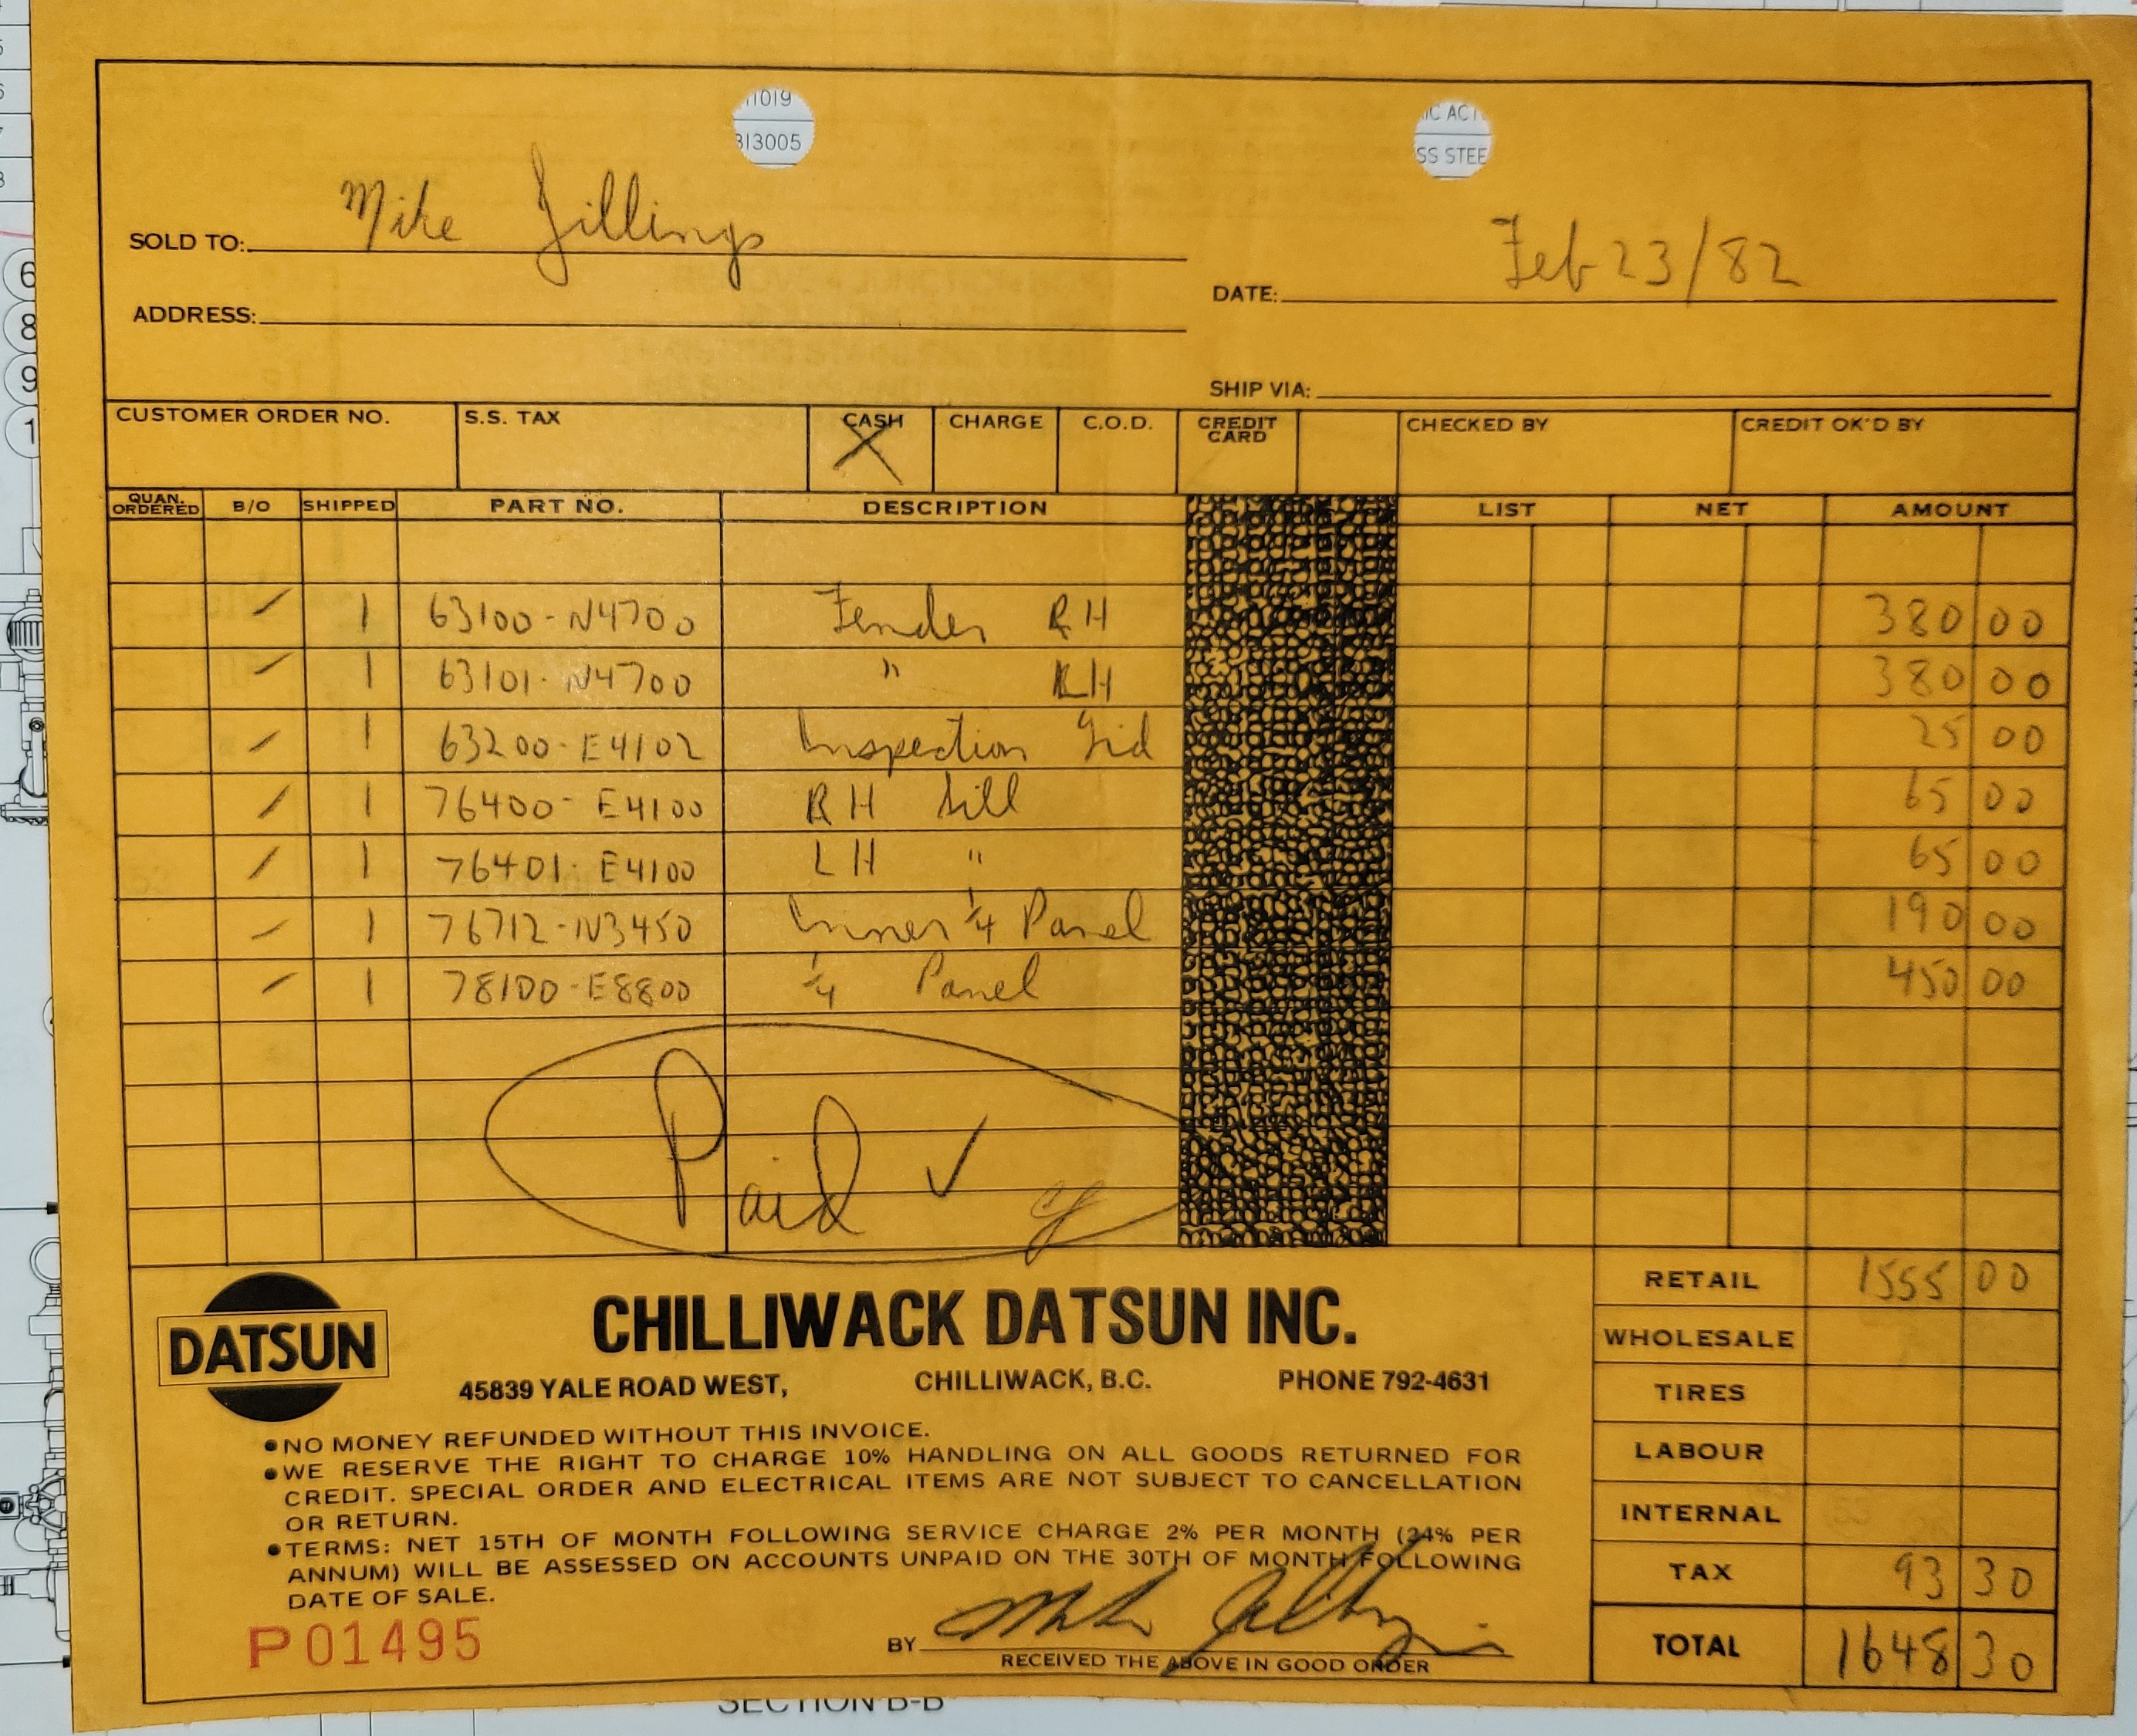 11019
313005
IC ACT
SS STEE
SOLD TO: Mike Jillings
DATE: Feb 23/82
ADDRESS:
SHIP VIA:
CUSTOMER ORDER NO. S.S. TAX CASH X CHARGE C.O.D. CREDIT CARD CHECKED BY CREDIT OK'D BY
QUAN. ORDERED B/O SHIPPED PART NO. DESCRIPTION LIST NET AMOUNT
/ 1 63100-N4700 Fender RH 380 00
/ 1 63101-N4700 " LH 380 00
/ 1 63200-E4102 Inspection Lid 25 00
/ 1 76400-E4100 RH Sill 65 00
/ 1 76401-E4100 LH " 65 00
/ 1 76712-N3450 Inner 1/4 Panel 190 00
/ 1 78100-E8800 1/4 Panel 450 00
Paid ✓
RETAIL 1555 00
WHOLESALE
TIRES
LABOUR
INTERNAL
TAX 93 30
TOTAL 1648 30
DATSUN
CHILLIWACK DATSUN INC.
45839 YALE ROAD WEST, CHILLIWACK, B.C. PHONE 792-4631
•NO MONEY REFUNDED WITHOUT THIS INVOICE.
•WE RESERVE THE RIGHT TO CHARGE 10% HANDLING ON ALL GOODS RETURNED FOR
CREDIT. SPECIAL ORDER AND ELECTRICAL ITEMS ARE NOT SUBJECT TO CANCELLATION
OR RETURN.
•TERMS: NET 15TH OF MONTH FOLLOWING SERVICE CHARGE 2% PER MONTH (24% PER
ANNUM) WILL BE ASSESSED ON ACCOUNTS UNPAID ON THE 30TH OF MONTH FOLLOWING
DATE OF SALE.
P01495
BY Mike Jillings
RECEIVED THE ABOVE IN GOOD ORDER
SECTION B-B